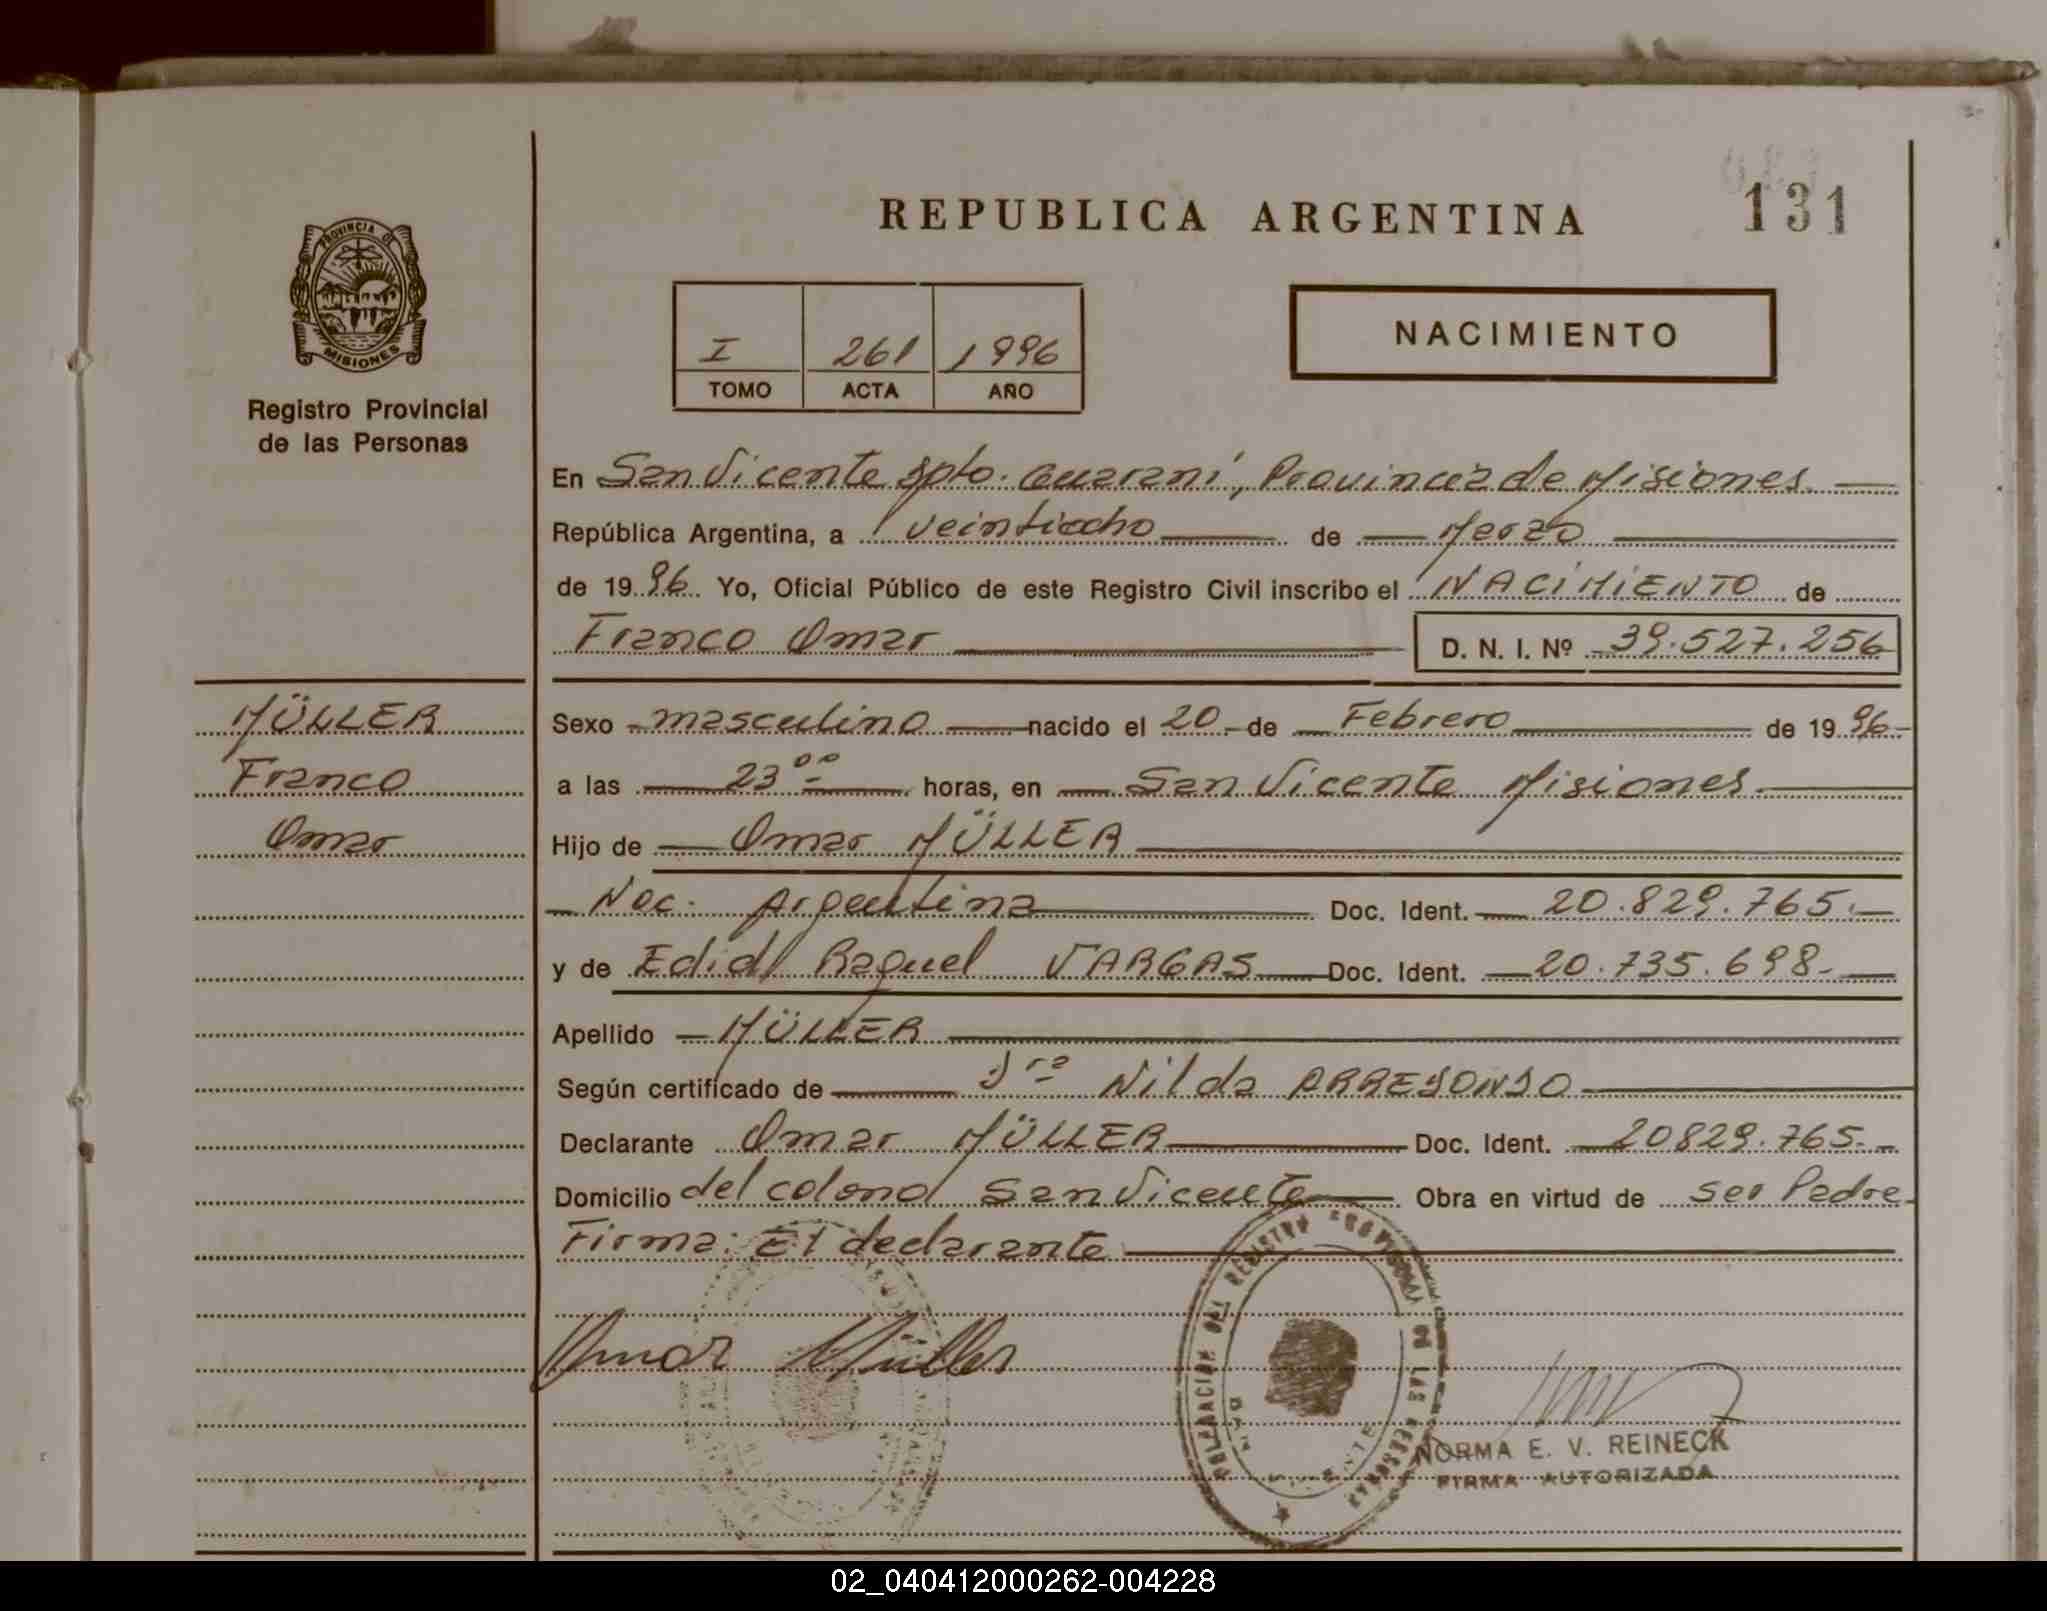 REPUBLICA ARGENTINA
131
PROVINCIA DE
MISIONES
Registro Provincial
de las Personas
I 261 1996
TOMO ACTA AÑO
NACIMIENTO
En San Vicente Dpto. Guaraní, Provincia de Misiones.
República Argentina, a veintiocho de Marzo
de 1996 Yo, Oficial Público de este Registro Civil inscribo el NACIMIENTO de
Franco Omar D. N. I. Nº 39.527.256
MÜLLER
Franco
Omar
Sexo masculino nacido el 20 de Febrero de 1996
a las 23 00 horas, en San Vicente Misiones
Hijo de Omar MÜLLER
Nac. Argentina Doc. Ident. 20.829.765.
y de Raquel VARGAS Doc. Ident. 20.735.698.
Apellido MÜLLER
Según certificado de Dra Nilda
Declarante Omar MÜLLER Doc. Ident. 20829.765.
Domicilio del colono San Vicente Obra en virtud de ser Padre
Firma: El declarante
Omar Müller
DEL REGISTRO PROVINCIAL DE LAS PERSONAS
NORMA E. V. REINECK
FIRMA AUTORIZADA
02_040412000262-004228